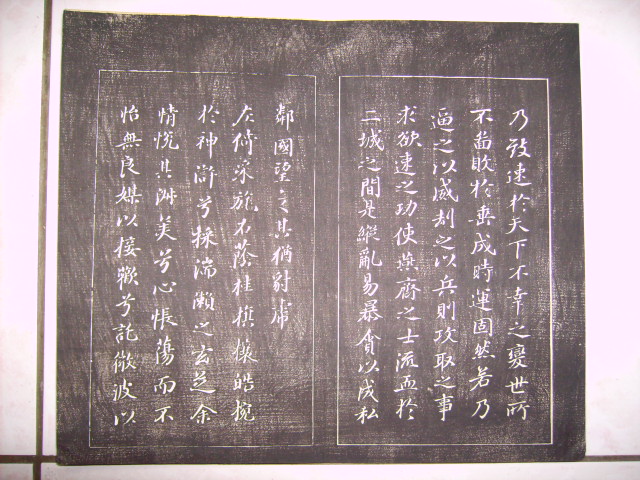 乃致速於天下不幸之變世所
不啚敗於垂成時運固然若乃
逼之以威劫之以兵則攻取之事
求欲速之功使燕齊之士流血於
二城之間是縱亂易暴貪以成私
鄰國望之其猶豺虎
左倚采旄右蔭桂旗攘皓捥
於神滸兮採湍瀨之玄芝余
情悅其淑美兮心悵蕩而不
怡無良媒以接歡兮託微波以